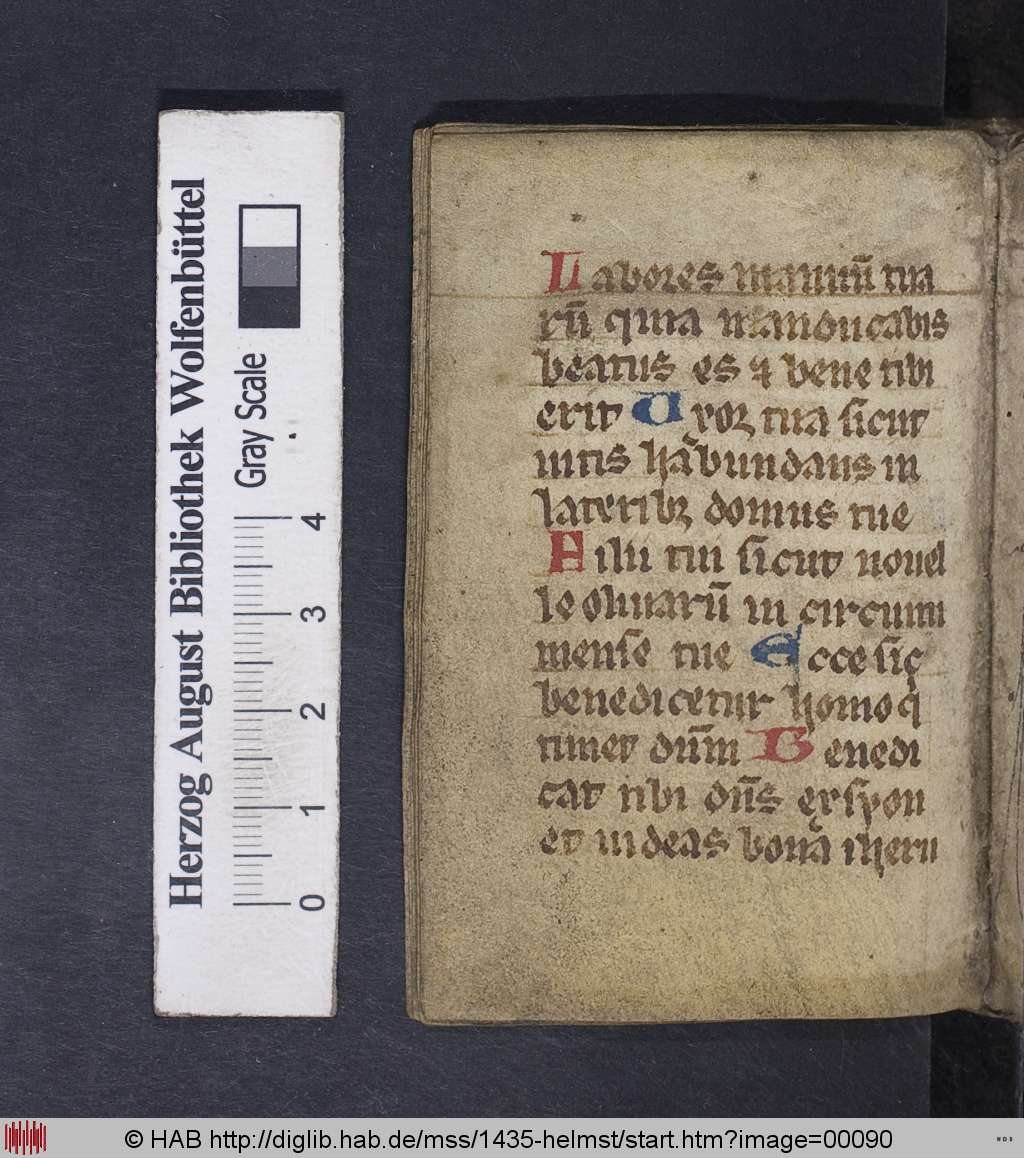 Herzog August Bibliothek Wolfenbüttel
Gray Scale
0 1 2 3 4
Labores manuū tua
rū quia manducabis
beatus es ⁊ bene tibi
erit Uxor tua sicut
uitis habundans in
lateribꝫ domus tue
Filii tui sicut nouel
le oliuarū in circuim
mense tue Ecce sic̄
benedicetur homo q̄
timet dūm Benedi
cat tibi dn̄s ex syon
et uideas bona iheru
© HAB http://diglib.hab.de/mss/1435-helmst/start.htm?image=00090